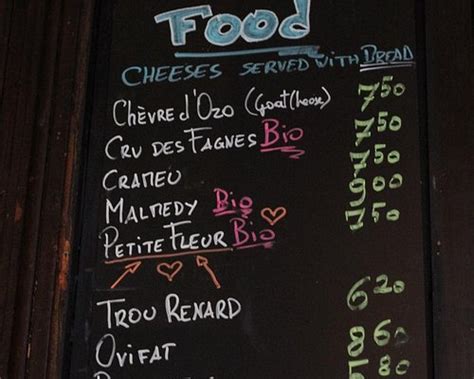 Food
CHEESES SERVED WITH BREAD
CHÈVRE d'OZO (Goat Cheese) 7 50
CRU DES FAGNES Bio 7 50
CRAMEU 7 50
MALMEDY Bio 9 00
PETITE FLEUR Bio 7 50
TROU RENARD 6 20
OVIFAT 8 60
80